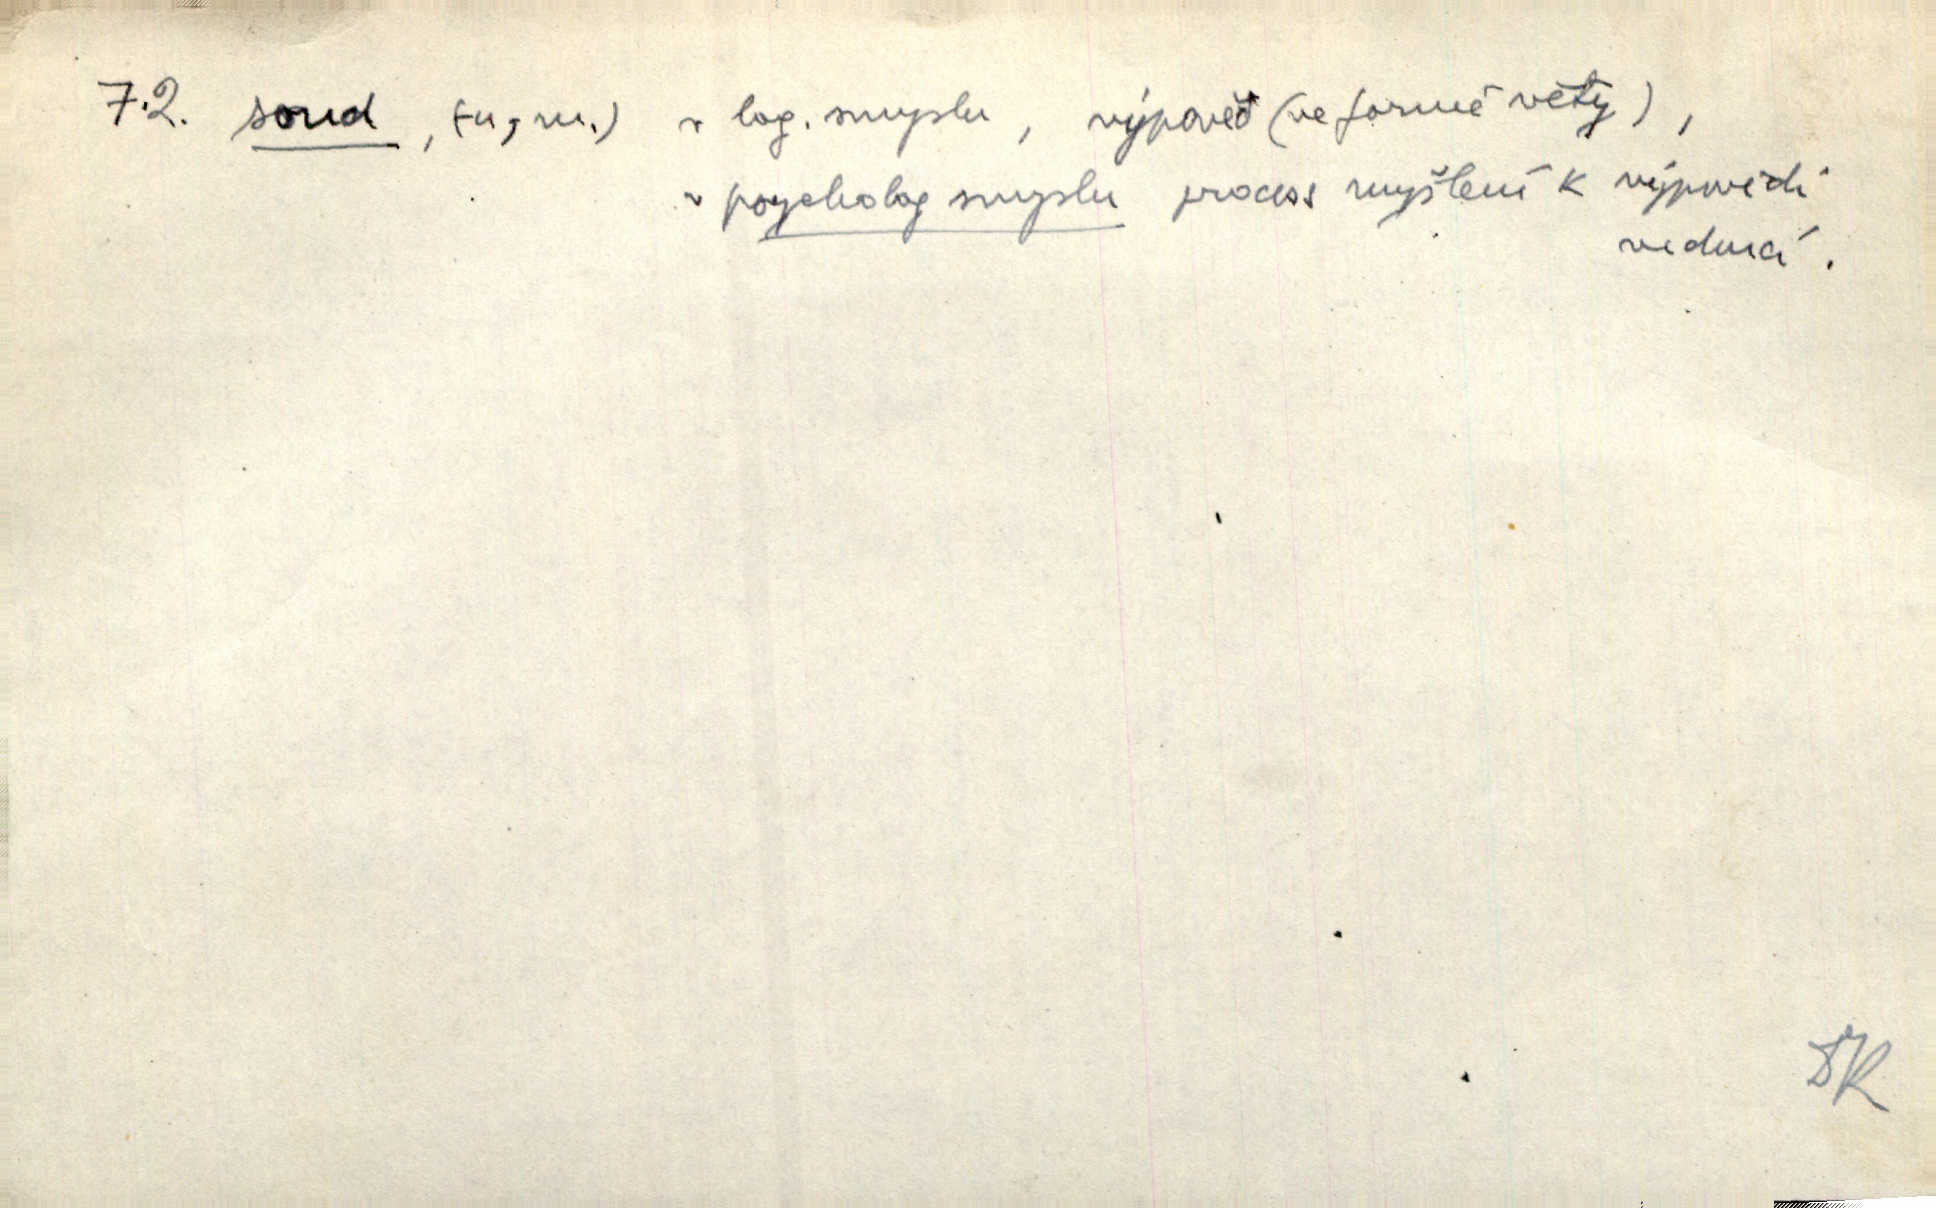 7.2. soud, (-u, m.) v log. smyslu, výpověď (ve formě věty),
v psycholog smyslu process myšlení k výpovědi
vedoucí.
DK